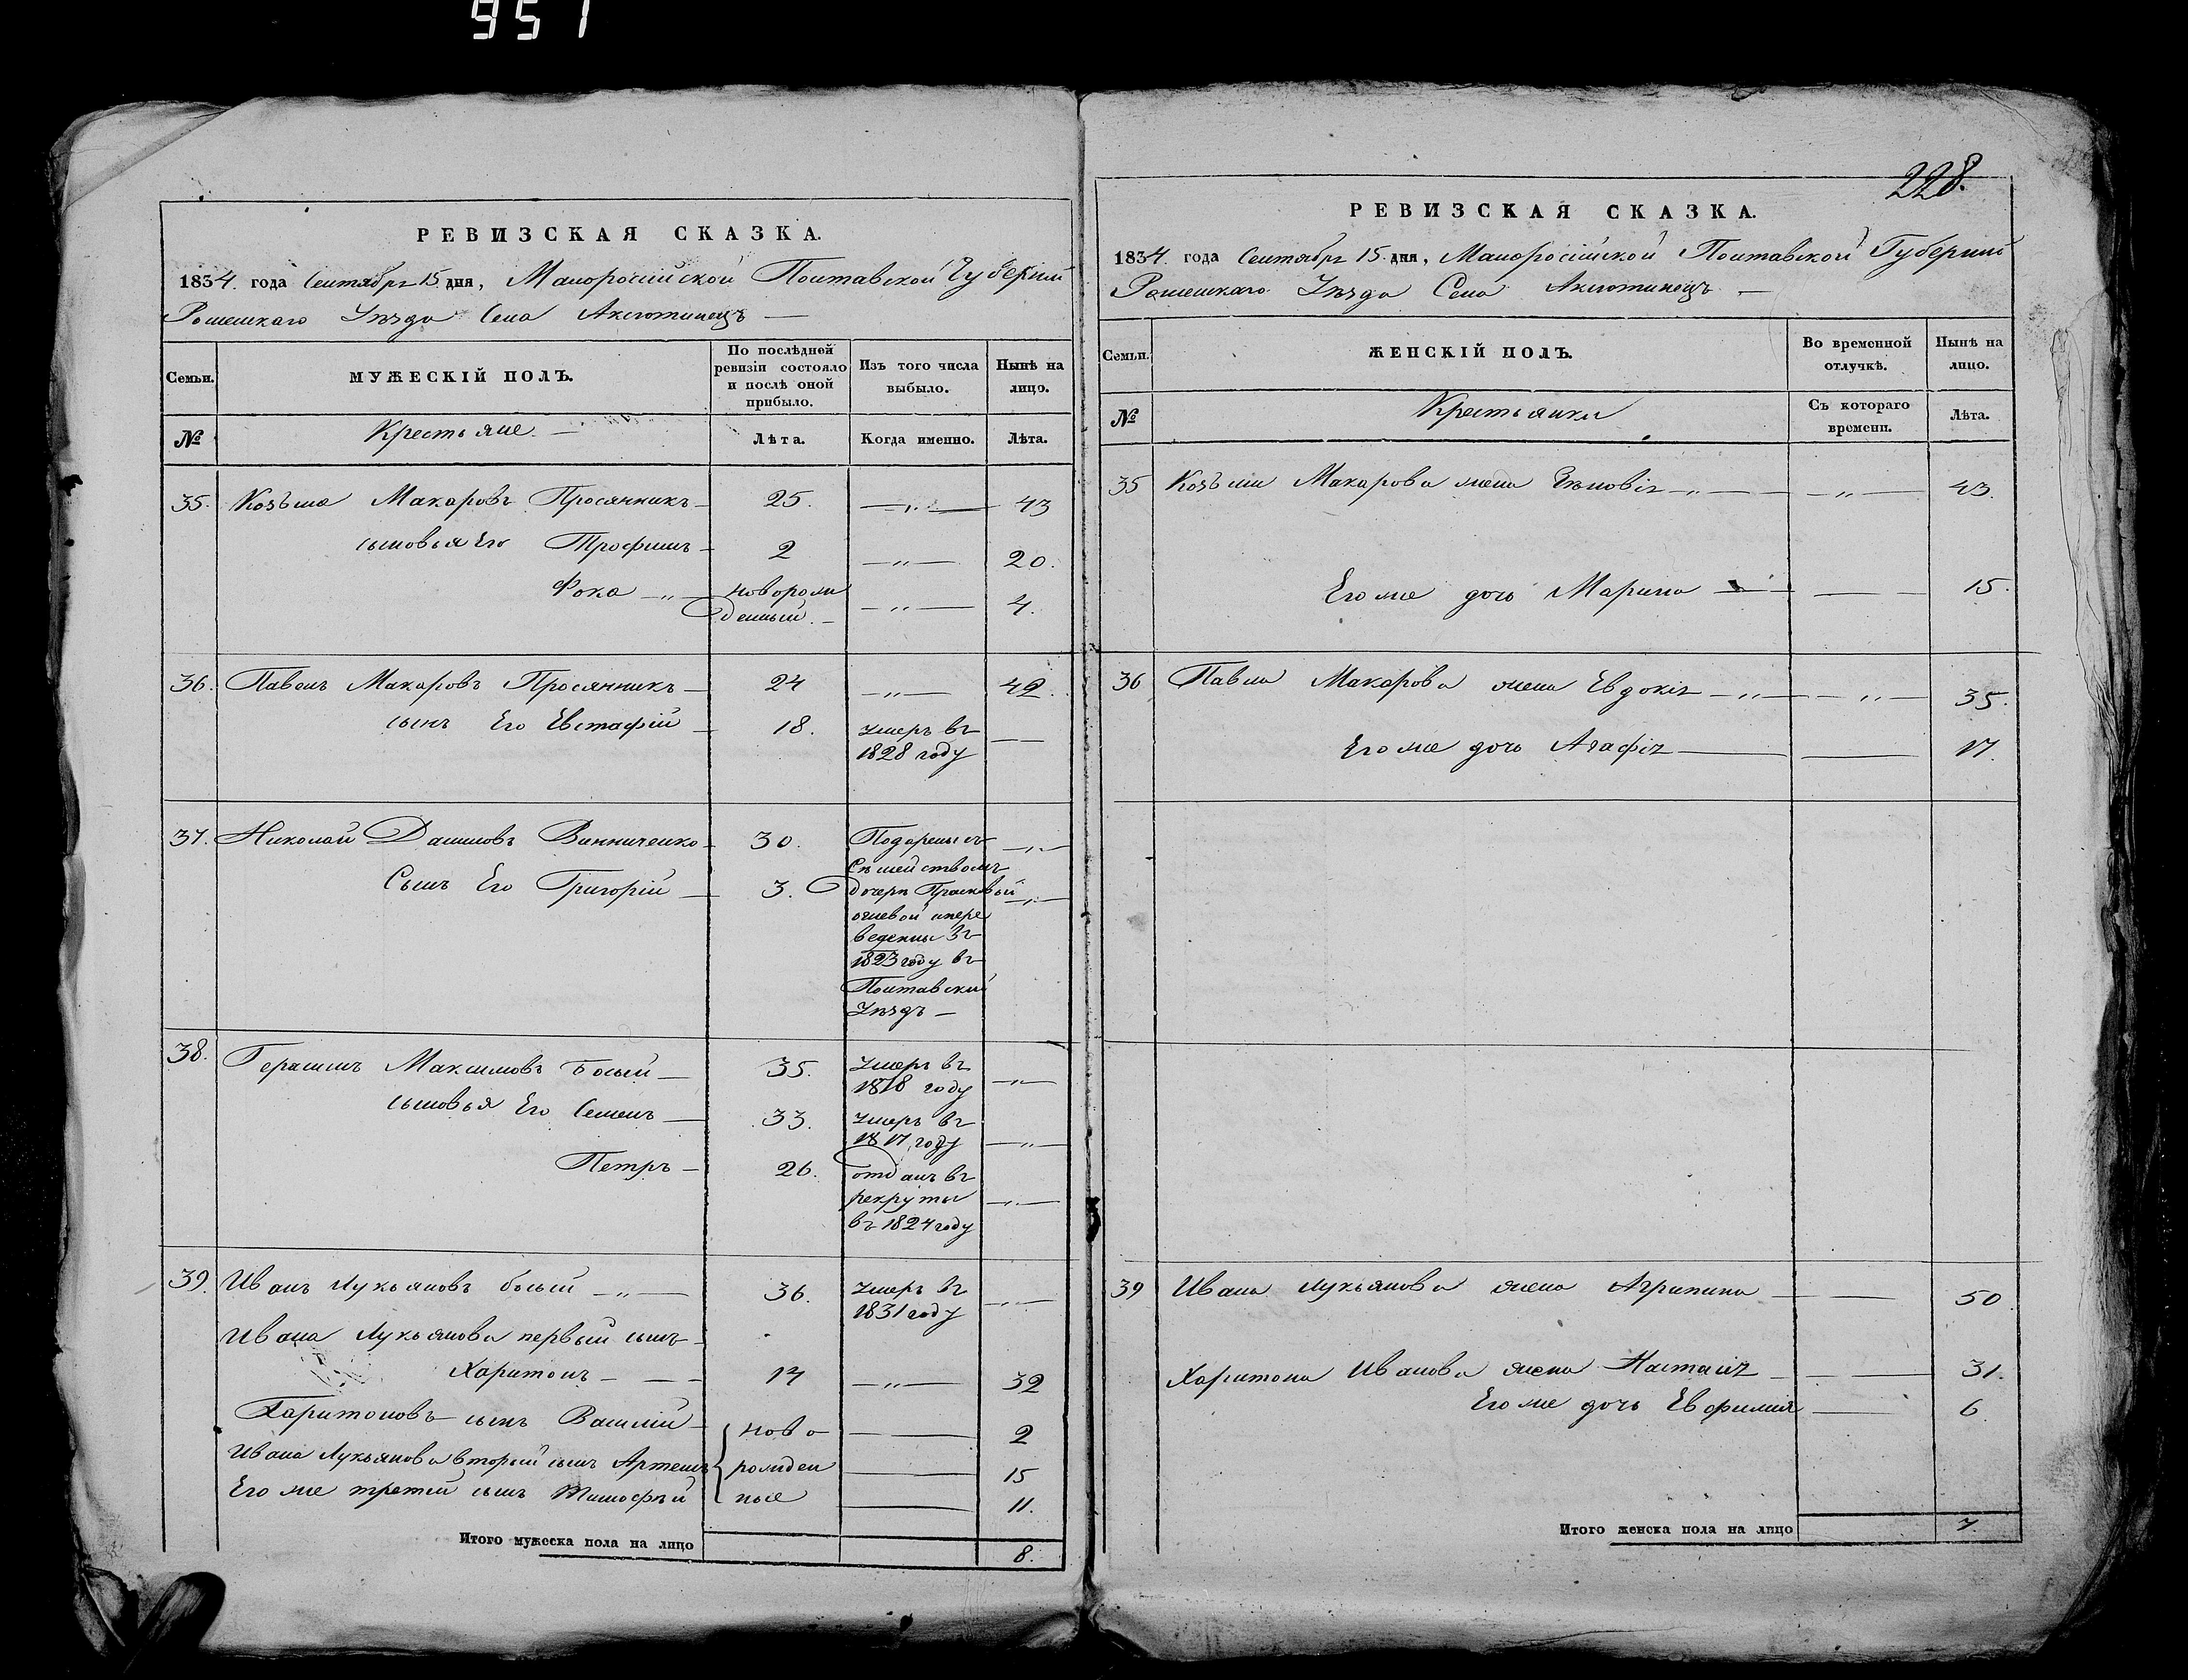 957
РЕВИЗСКАЯ СКАЗКА.
1834. года Сентября 15. дня, Малоросiйской Полтавской Губернiи
Роменскаго Уѣзда Села Аксютинецъ —
Семьи.
МУЖЕСКIЙ ПОЛЪ.
По послѣдней ревизiи состояло и послѣ оной прибыло.
Изъ того числа выбыло.
Нынѣ на лицо.
№
Крестьяне. —
Лѣта.
Когда именно.
Лѣта.
35. Козьма Макаровъ Просянникъ — 25. — „ — 43
сыновья Его Трофимъ — 2 — „ — 20.
Фока — „ — новорож
денный. — — „ — 4.
36. Павелъ Макаровъ Просянникъ — 24 — „ — 42.
сынъ Его Евстафiй — 18. умеръ въ —
1828 году
37. Николай Даниловъ Винниченко — 30. Подарены съ — „ —
Сѣмействомъ
Сынъ Его Григорiй — 3. дочери Прасковьи — „ —
ведены въ
1823 году въ
Полтавскiй
Уѣздъ —
38. Герасимъ Максимовъ Босый — 35. Умеръ въ
1818 году — „ —
сыновья Его Семенъ — 33. Умеръ въ
1817 году — „ —
Петръ — 26. отданъ въ
рекруты — „ —
въ 1824 году
39. Иванъ Лукьяновъ босый — „ — 36. Умеръ въ — „ —
1831 году
Ивана Лукьянова первый сынъ —
Харитонъ — — — 14 — „ — 32
Харитоновъ сынъ Василiй — ново — 2
Ивана Лукьянова второй сынъ Артемъ рожден — 15
Его же третiй сынъ Тимофѣй ные — 11.
Итого мужеска пола на лицо 8.
228.
РЕВИЗСКАЯ СКАЗКА.
1834. года Сентября 15. дня, Малоросiйской Полтавской Губернiи
Роменскаго Уѣзда Села Аксютинецъ —
Семьи.
ЖЕНСКIЙ ПОЛЪ.
Во временной отлучкѣ.
Нынѣ на лицо.
№
Крестьянки
Съ котораго времени.
Лѣта.
35 Козьмы Макарова жена Зѣновiя — „ — — „ — 43.
Его же дочь Марина — — 15.
36 Павла Макарова жена Евдокiя — „ — — „ — 35.
Его же дочь Агафiя — — 17.
39 Ивана Лукьянова жена Агрипина — — 50.
Харитона Иванова жена Настасiя — — 31.
Его же дочь Евфимия — 6.
Итого женска пола на лицо 7.